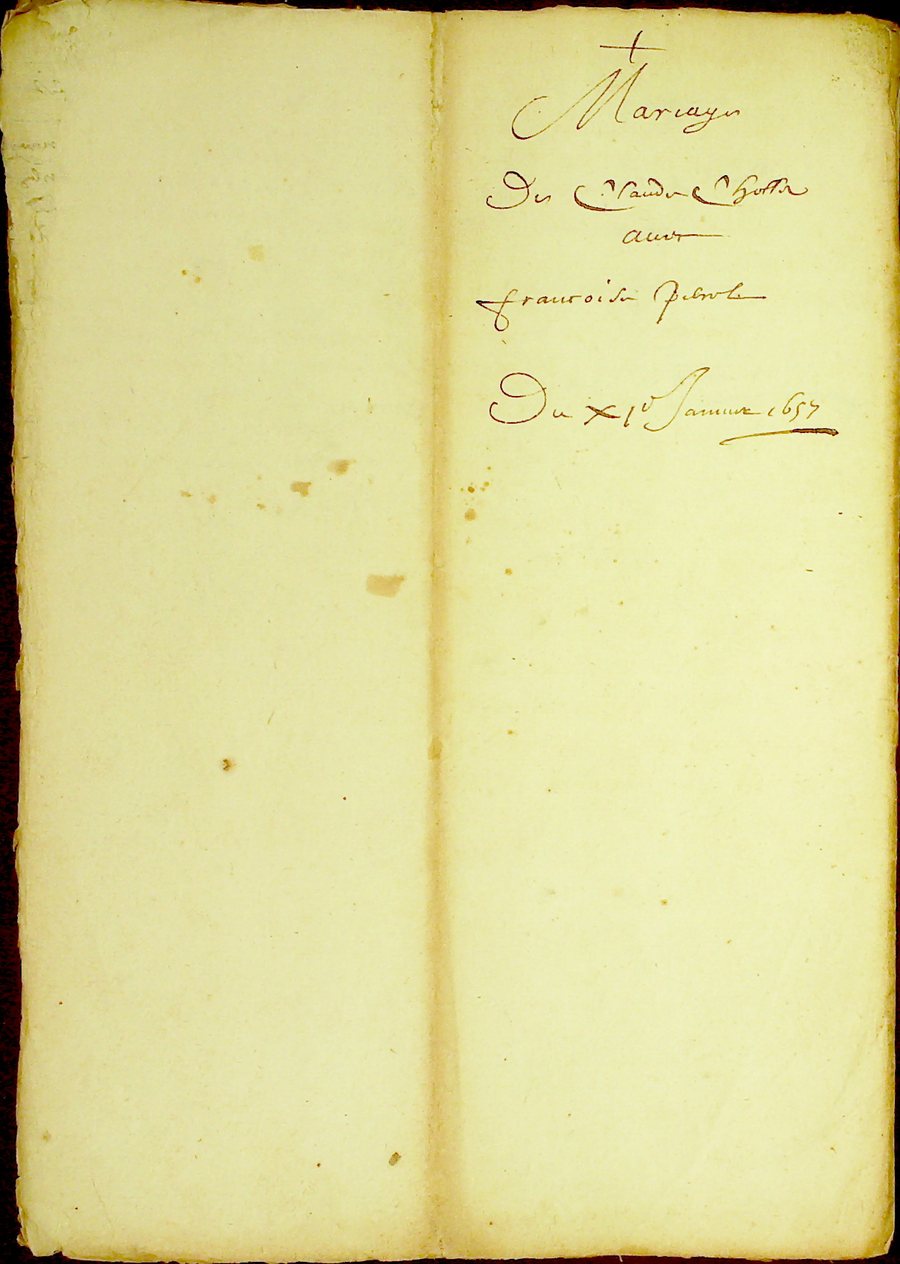 Mariage
De Claude
avec
francoise
Du XIe Janvier 1657